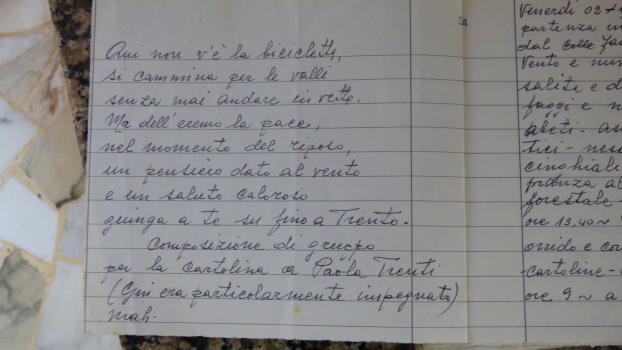 Qui non v'è la bicicletta,
si cammina per le valli
senza mai andare in vetta.
Ma dell'eremo la pace,
nel momento del riposo,
un pensiero dato al vento
e un saluto caloroso
giunga a te su fino a Trento.
Composizione di gruppo
per la cartolina a Paola Trenti
(Gini era particolarmente impegnata)
mah.
Venerdì 02
partenza in
dal colle
Vento e
salite e d
faggi e n
abeti - as
tici - nes
cinghiali
pranzo al
forestale -
ore 13,40 ~
orrido e cor
cartoline -
ore 9 ~ a